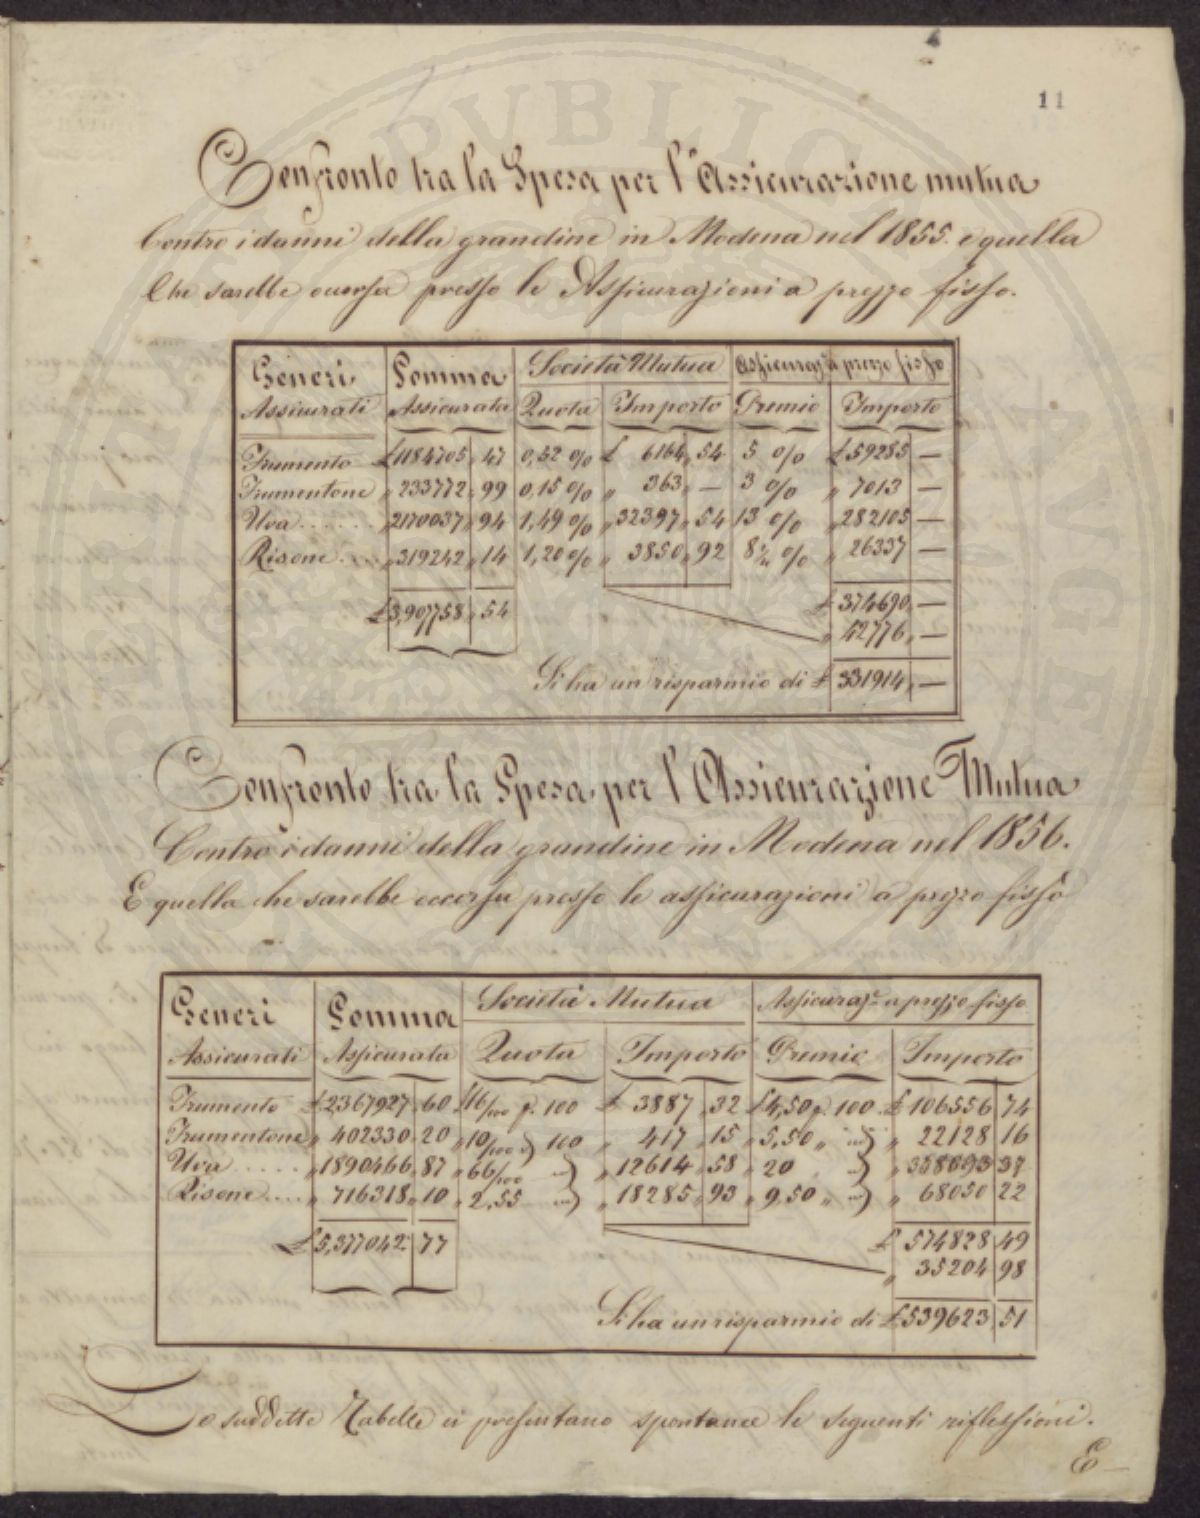 11
Confronto tra la Spesa per l'Assicurazione mutua
Contro i danni della grandine in Modena nel 1855. e quella
Che sarebbe occorsa presso le Assicurazioni a prezzo fisso.
Generi Somma Società Mutua Assicurazᵉ a prezzo fisso
Assicurati Assicurata Quota Importo Premio Importo
Frumento £ 1184705, 47 0,52 % £ 6164, 54 5 % £ 59285 —
Frumentone „ 233772, 99 0,15 % „ 363, — 3 % „ 7013 —
Uva ...... „ 2170037, 94 1,49 % „ 32397, 54 13 % „ 282105 —
Risone .... „ 319242, 14 1,20 % „ 3850, 92 8¼ % „ 26337 —
£ 374690, —
£ 3,907758, 54
„ 42776, —
Si ha un risparmio di £ 331914, —
Confronto tra la Spesa per l'Assicurazione Mutua
Contro i danni della grandine in Modena nel 1856.
E quella che sarebbe occorsa presso le assicurazioni a prezzo fisso
Generi Somma Società Mutua Assicurazᵉ a prezzo fisso
Assicurati Assicurata Quota Importo Premio Importo
Frumento £ 2367927, 60 £ 16/100 p. 100 £ 3887, 32 £ 4,50 p. 100 £ 106556 74
Frumentone „ 402330 20 „ 10/100 id 100 „ 417, 15 „ 5,50 „ id „ 22128 16
Uva ..... „ 1890466, 87 „ 66/100 id „ 12614, 58 „ 20 id „ 37
Risone .... „ 716318, 10 „ 2,55 id „ 18285, 93 „ 9,50 „ id „ 68050 22
£ 5,377042 77 £ 574828 49
„ 35204 98
Si ha un risparmio di £ 539623, 51
Le suddette Tabelle ci presentano spontanee le seguenti riflessioni.
E —